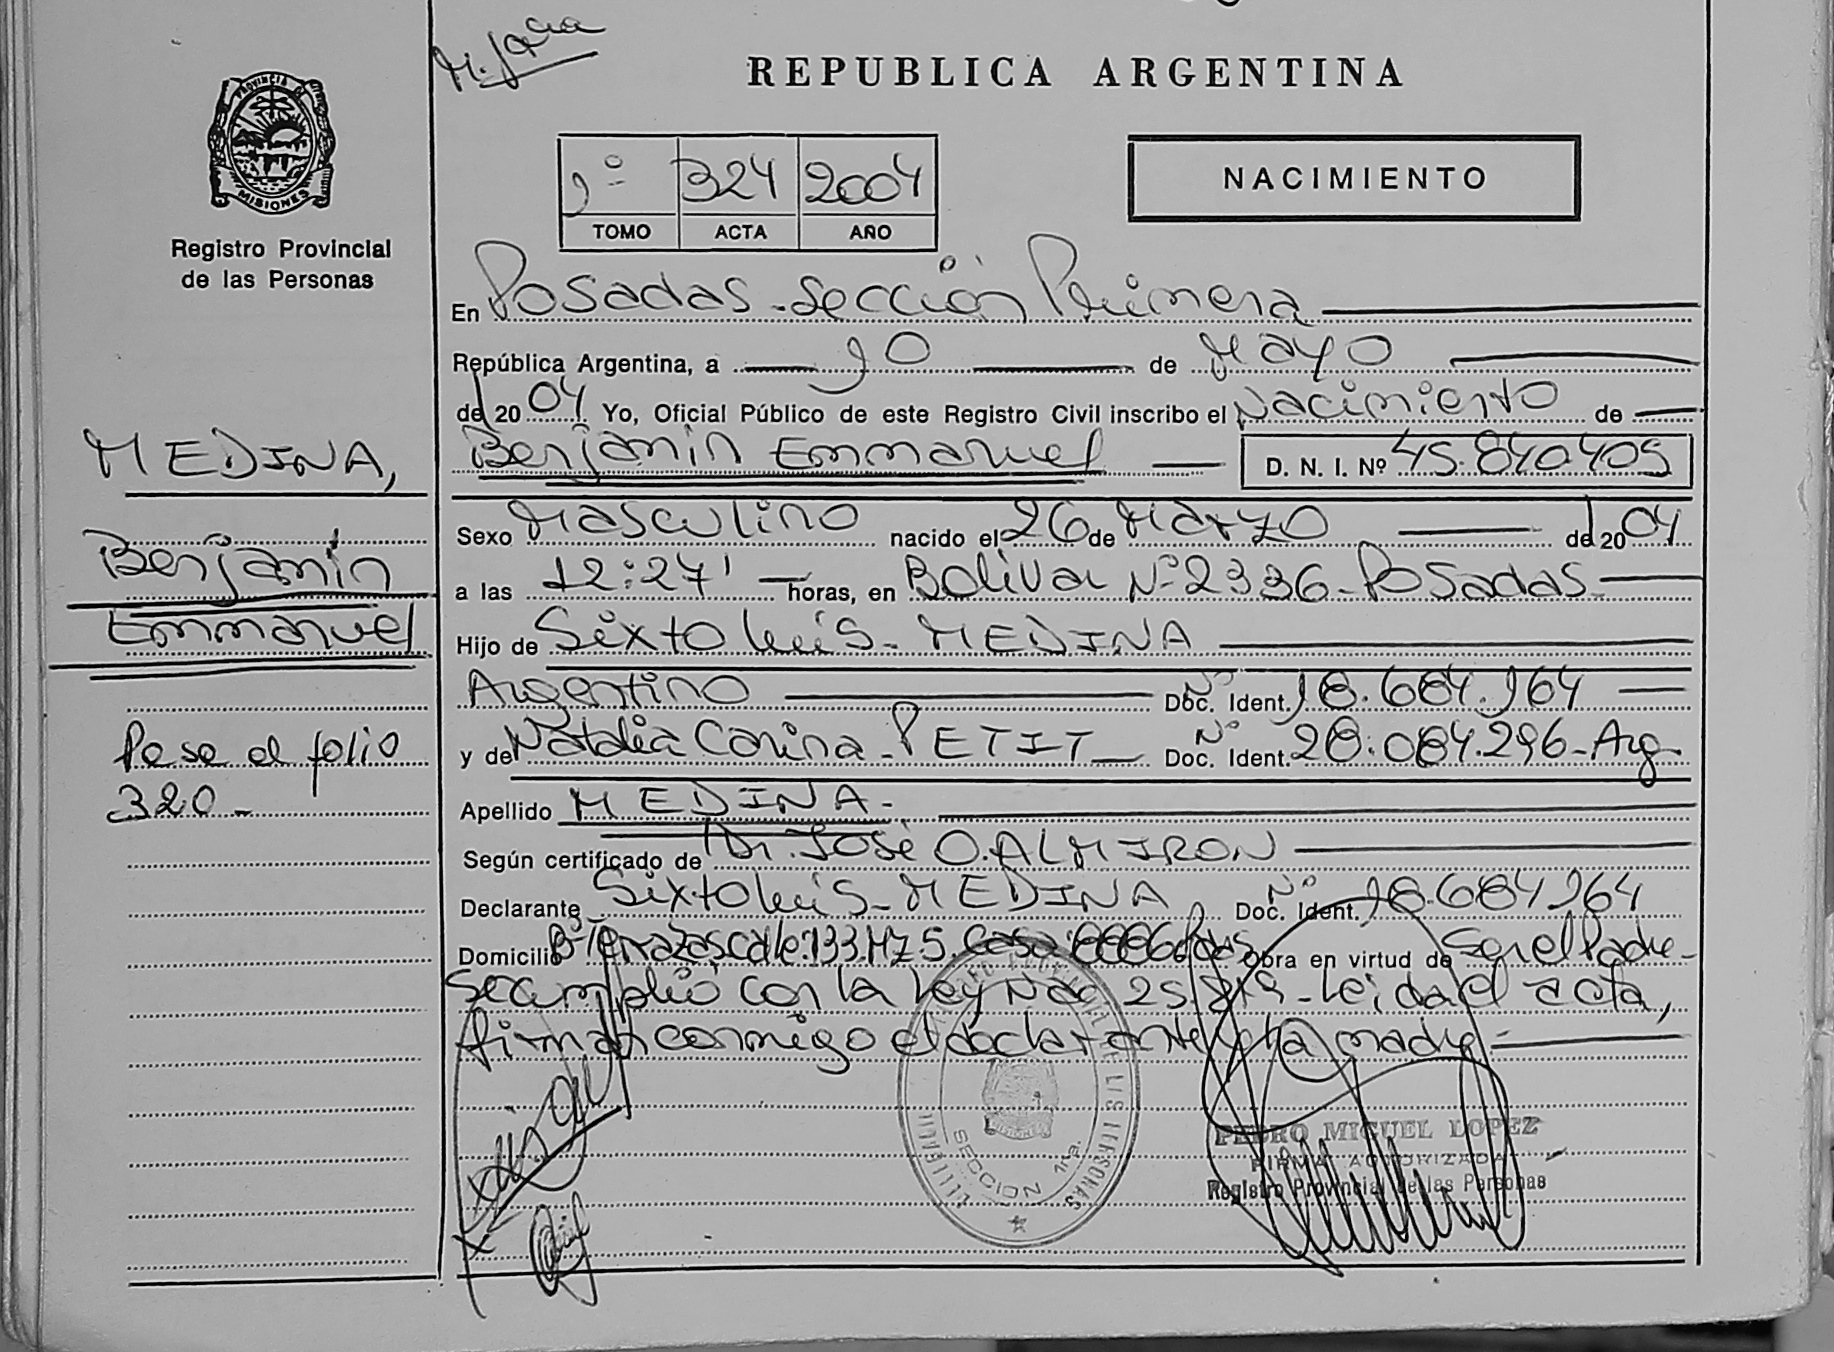 REPUBLICA ARGENTINA
PROVINCIA DE
MISIONES
Registro Provincial
de las Personas
1º 324 2004
TOMO ACTA AÑO
NACIMIENTO
En Posadas - Sección Primera
República Argentina, a 10 de Mayo
del 2004 Yo, Oficial Público de este Registro Civil inscribo el Nacimiento de
Benjamín Emmanuel D. N. I. Nº 45.840.405
Sexo Masculino nacido el 26 de Marzo del 2004
a las 12:27' horas, en Bolivar Nº 2336 - Posadas -
Hijo de Sixto Luis - MEDINA
Argentino Doc. Ident. Nº 18.684.164
y de Natalia Carina - PETIT Doc. Ident. Nº 28.084.296 - Arg.
Apellido MEDINA -
Según certificado de Dr. José O. ALMIRON
Declarante Sixto Luis - MEDINA Doc. Ident. Nº 18.684.164
Domicilio Bº Terrazas calle 133 Mz 5 Casa Pdas Obra en virtud de Ser el Padre -
Se cumplió con la Ley Nac 25.819 - Leida el acta,
firman conmigo el declarante y la madre -
MEDINA,
Benjamín
Emmanuel
Pase al folio
320 -
SECCION 1ra.
PEDRO MIGUEL LOPEZ
FIRMA AUTORIZADA
Registro Provincial de las Personas